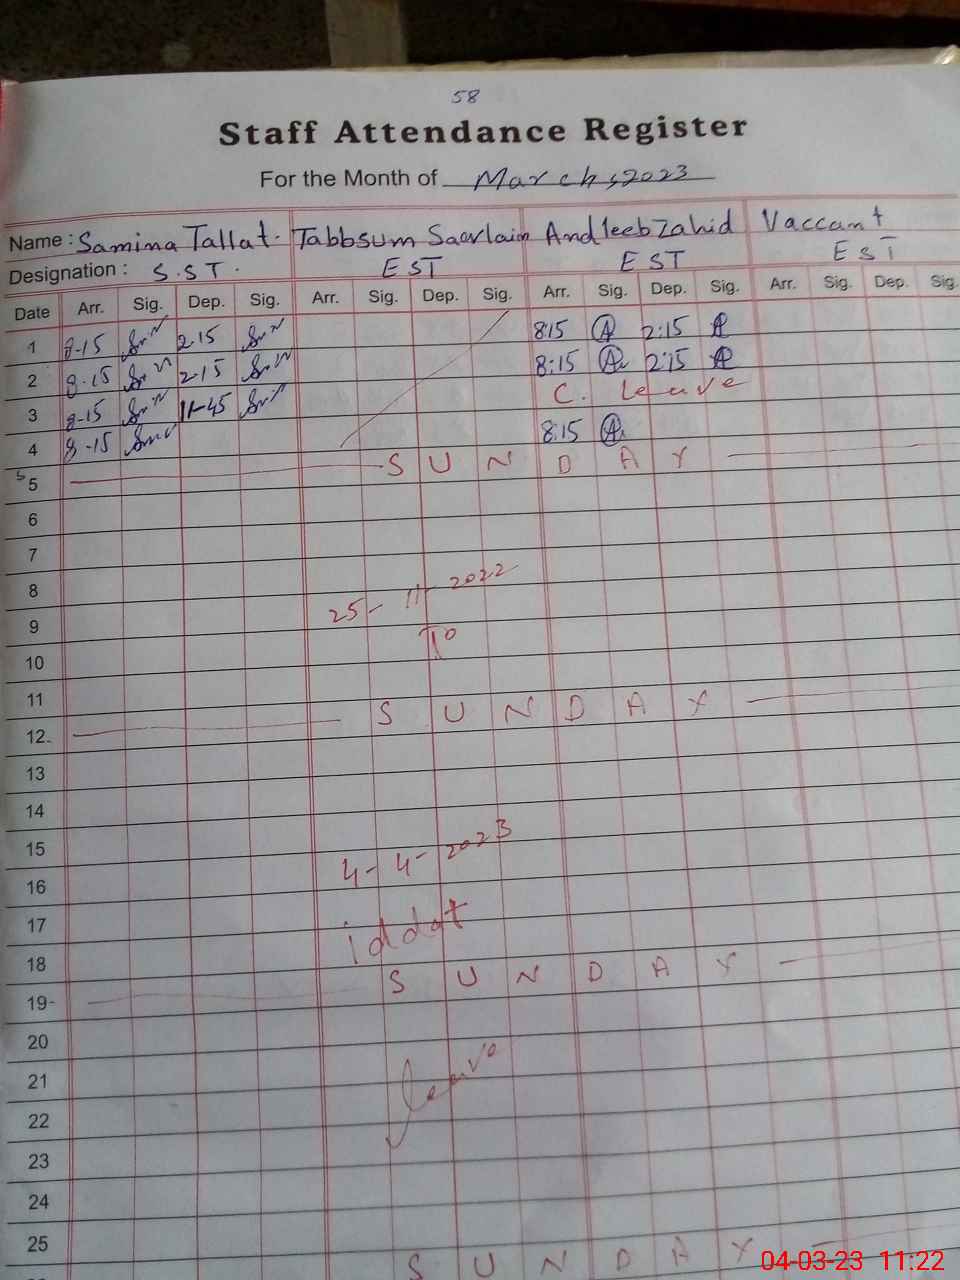 58
Staff Attendance Register
For the Month of March, 2023
Name : Samina Tallat. Tabbsum Saerlain Andleeb Zahid Vaccant
Designation : S.ST. EST EST EST
Date Arr. Sig. Dep. Sig. Arr. Sig. Dep. Sig. Arr. Sig. Dep. Sig. Arr. Sig. Dep. Sig.
1 8-15 2-15 8:15 2:15
2 8-15 2-15 8:15 2:15
3 8-15 11-45 C. leave
4 8-15 8:15
5 SUNDAY
6
7
8
25-11-2022
9
To
10
11
12 SUNDAY
13
14
15
4-4-2023
16
17
iddat
18
19 SUNDAY
20
21
leave
22
23
24
25
SUNDAY
04-03-23 11:22